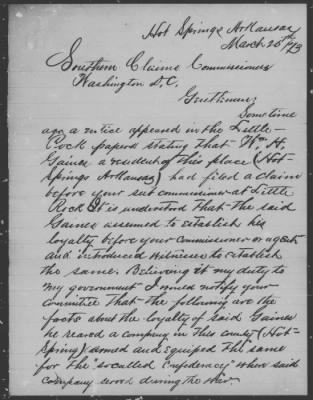 Hot Springs Arkansas
March 25th /73
Southern Claims Commissioners
Washington D.C.
Gentlemen
Sometime
ago a notice appeared in the Little-
Rock papers stating that Wm. H.
Gaines a resident of this place (Hot-
Springs Arkansas) had filed a claim
before your sub commissioner at Little
Rock It is understood that the said
Gaines assumed to establish his
loyalty before your commissioner or agent
and introduced witnesses to establish
the same. Believing it my duty to
my government I would notify your
committee that the following are the
facts about the loyalty of said Gaines
he reared a company in this county (Hot-
Spring) armed and equiped the same
for the "so called Confederacy" where said
company served during the war.